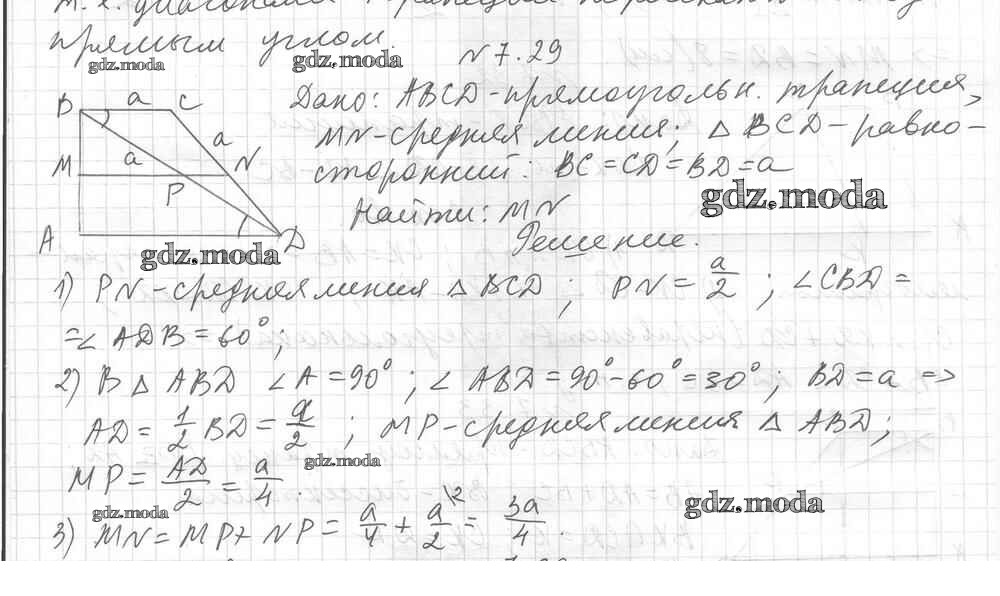 М.к. диагонали трапеции
прямым углом.
gdz.moda
gdz.moda
N 7.29
B a C
a
M a N
P
A D
gdz.moda
Дано: ABCD - прямоугольн. трапеция,
MN - средняя линия; △ BCD - равно-
сторонний: BC = CD = BD = a
gdz.moda
Найти: MN
Решение.
1) PN - средняя линия △ BCD ; PN = a/2 ; ∠ CBD =
= ∠ ADB = 60°;
2) В △ ABD ∠ A = 90° ; ∠ ABD = 90° - 60° = 30° ; BD = a =>
AD = 1/2 BD = a/2 ; MP - средняя линия △ ABD ;
gdz.moda
MP = AD/2 = a/4 .
gdz.moda
gdz.moda
3) MN = MP + NP = a/4 + a\2/2 = 3a/4 .